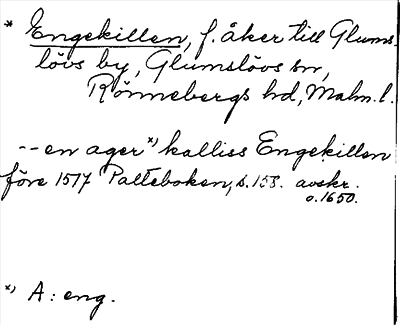 * Engekillen, f. åker till Glums-
lövs by, Glumslövs sn,
Rönnebergs hd, Malm. l.
-- en ager *) kalliss Engekillen
före 1517 Palteboken, s. 158. avskr.
o. 1650.
*) A: eng.